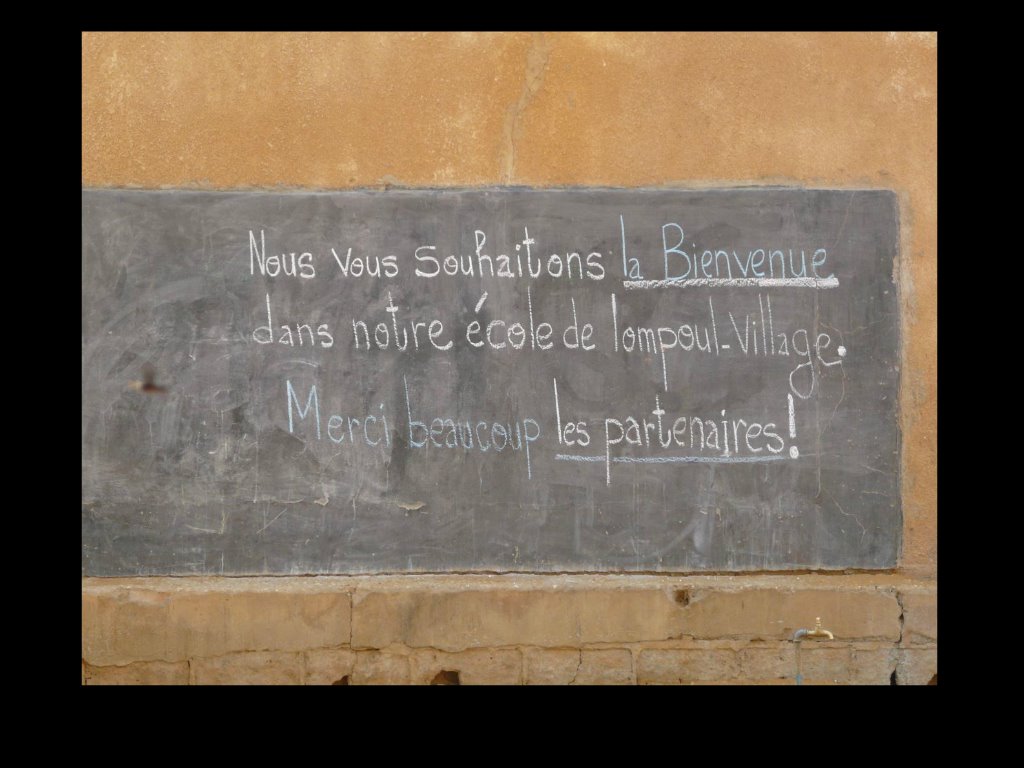 Nous vous souhaitons la Bienvenue
dans notre école de lompoul-Village.
Merci beaucoup les partenaires!